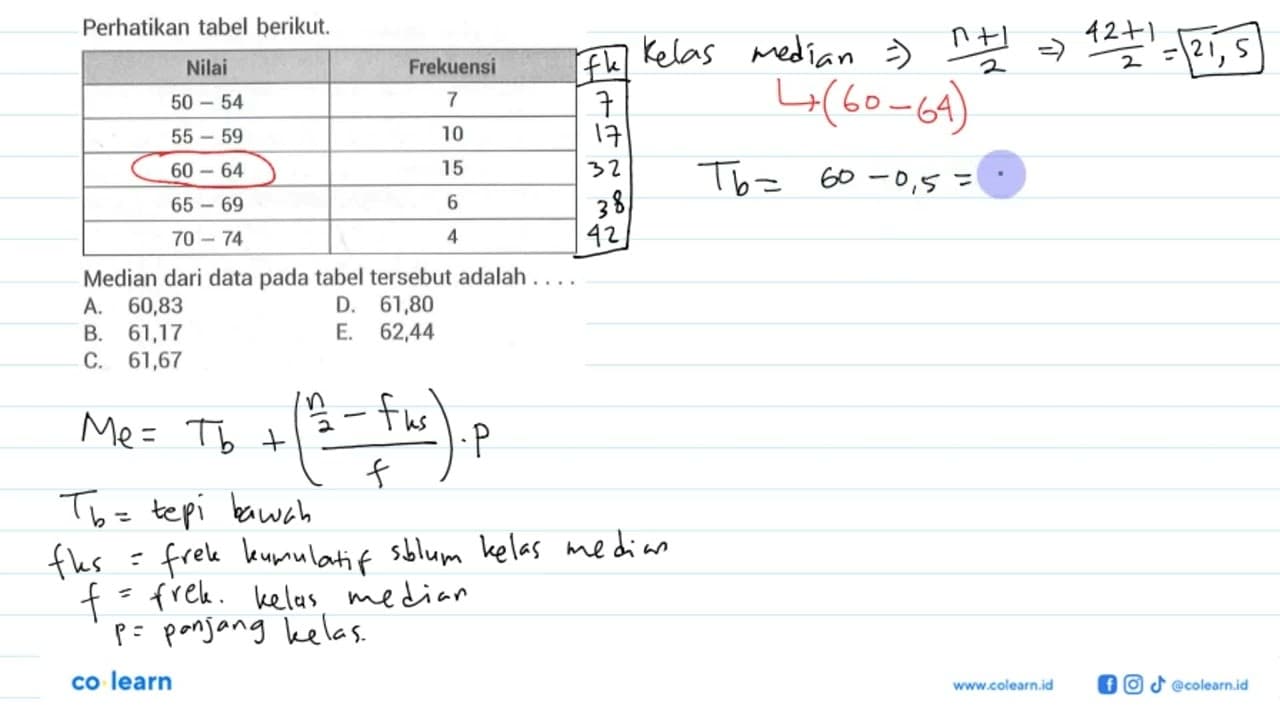 Perhatikan tabel berikut.
Nilai Frekuensi fk
50 – 54 7 7
55 – 59 10 17
60 – 64 15 32
65 – 69 6 38
70 – 74 4 42
Median dari data pada tabel tersebut adalah . . . .
A. 60,83 D. 61,80
B. 61,17 E. 62,44
C. 61,67
Kelas median ⇒ n+1/2 ⇒ 42+1/2 = 21,5
↳(60-64)
Tb = 60 - 0,5 =
Me = Tb + (n/2 - fks / f) . p
Tb = tepi bawah
fks = frek kumulatif sblum kelas median
f = frek. kelas median
p = panjang kelas.
co learn
www.colearn.id @colearn.id